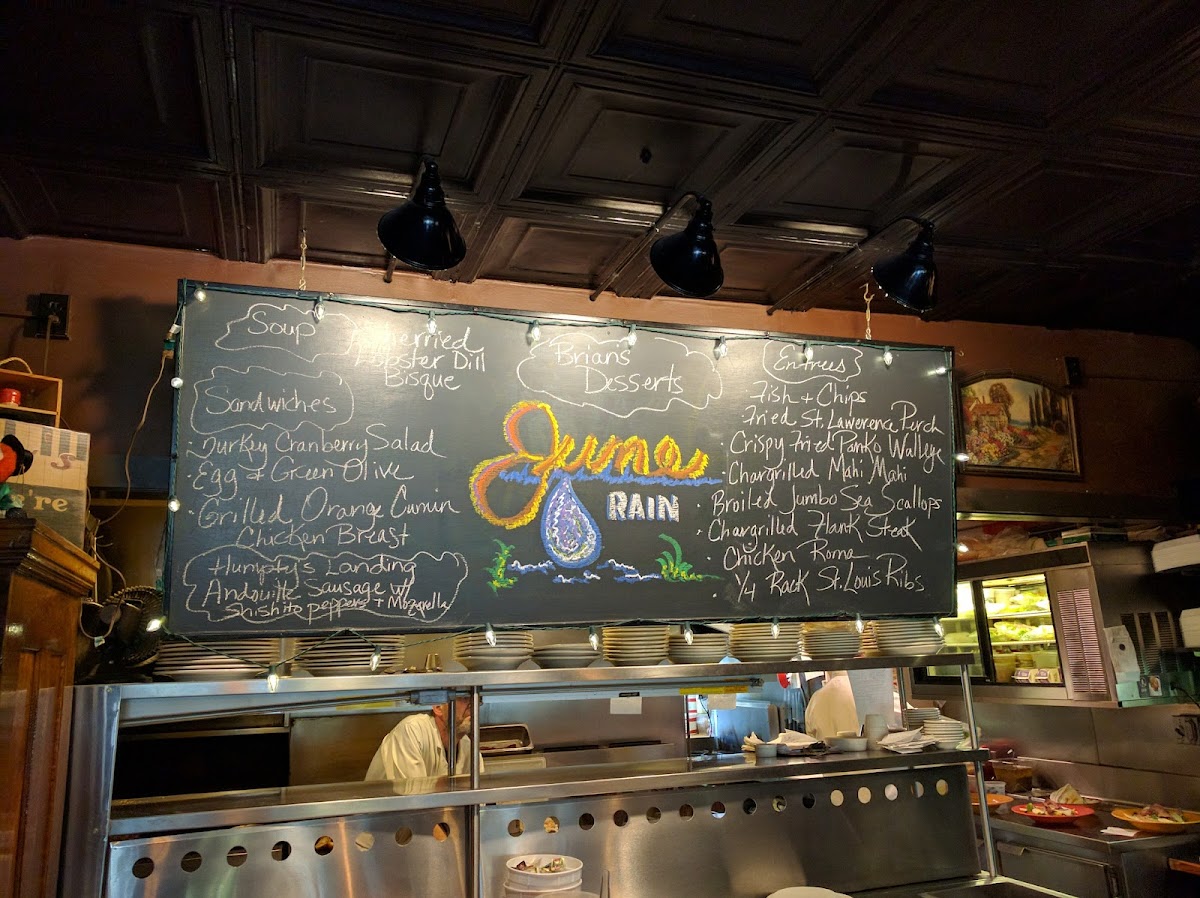 Soup
Sherried
Lobster Dill
Bisque
Sandwiches
· Turkey Cranberry Salad
· Egg & Green Olive
· Grilled Orange Cumin
Chicken Breast
Humpty's Landing
Andouille Sausage w/
Shishito peppers + Mozarella
Brian's
Desserts
June
RAIN
Entrees
Fish + Chips
Fried St. Lawerence Perch
· Crispy Fried Panko Walleye
· Chargrilled Mahi Mahi
Broiled Jumbo Sea Scallops
· Chargrilled Flank Steak
· Chicken Roma
· 1/4 Rack St. Louis Ribs
're